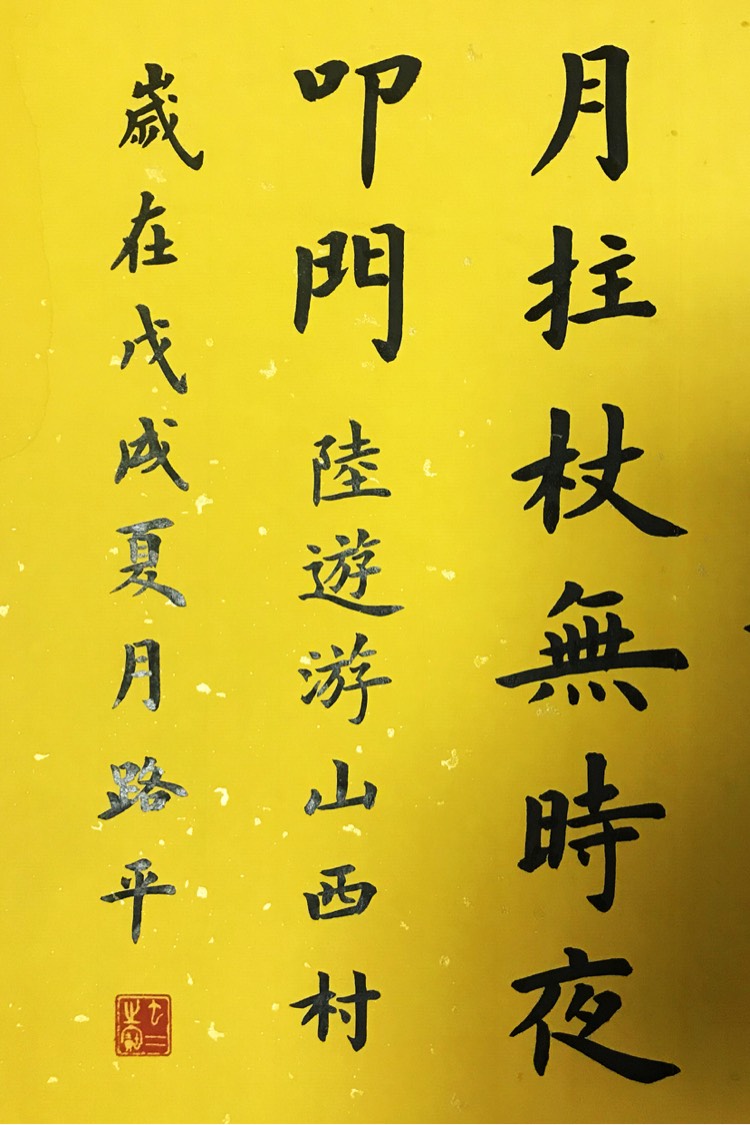 月拄杖無時夜
叩門 陸遊游山西村
歲在戊成夏月路平